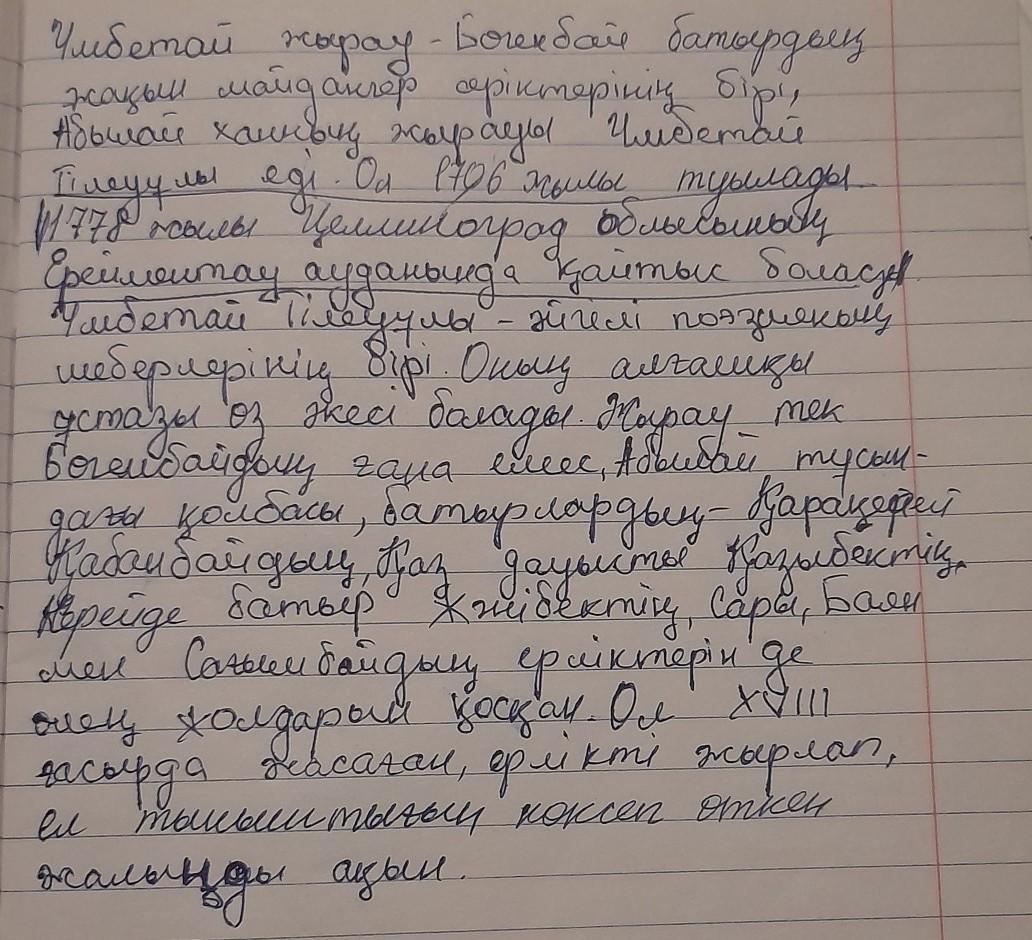 Үмбетай жырау - Бөгенбай батырдың
жақын майдангер серіктерінің бірі,
Абылай ханның жырауы Үмбетай
Тілеуұлы еді. Ол 1706 жылы туылады
1778 жылы Целлиноград облысының
Ерейментау ауданында қайтыс болады.
Үмбетай Тілеуұлы - әйгілі поэзияның
шеберлерінің бірі. Оның алғашқы
ұстазы өз әкесі болады. Жырау тек
Бөгенбайдың ғана емес, Абылай тұсын-
дағы қолбасы, батырлардың - Қаракерей
Қабанбайдың, Қаз дауысты Қазыбектің,
Керейде батыр Жәнібектің, Сары, Баян
мен Сағымбайдың ерліктерін де
өлең жолдарын қосқан. Ол XVIII
ғасырда жасаған, ерлікті жырлап,
ел тыныштығын көксеп өткен
жалынды ақын.